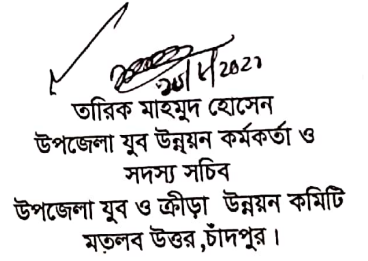 তারিক মাহমুদ হোসেন
উপজেলা যুব উন্নয়ন কর্মকর্তা ও
সদস্য সচিব
উপজেলা যুব ও ক্রীড়া উন্নয়ন কমিটি
মতলব উত্তর,চাঁদপুর।